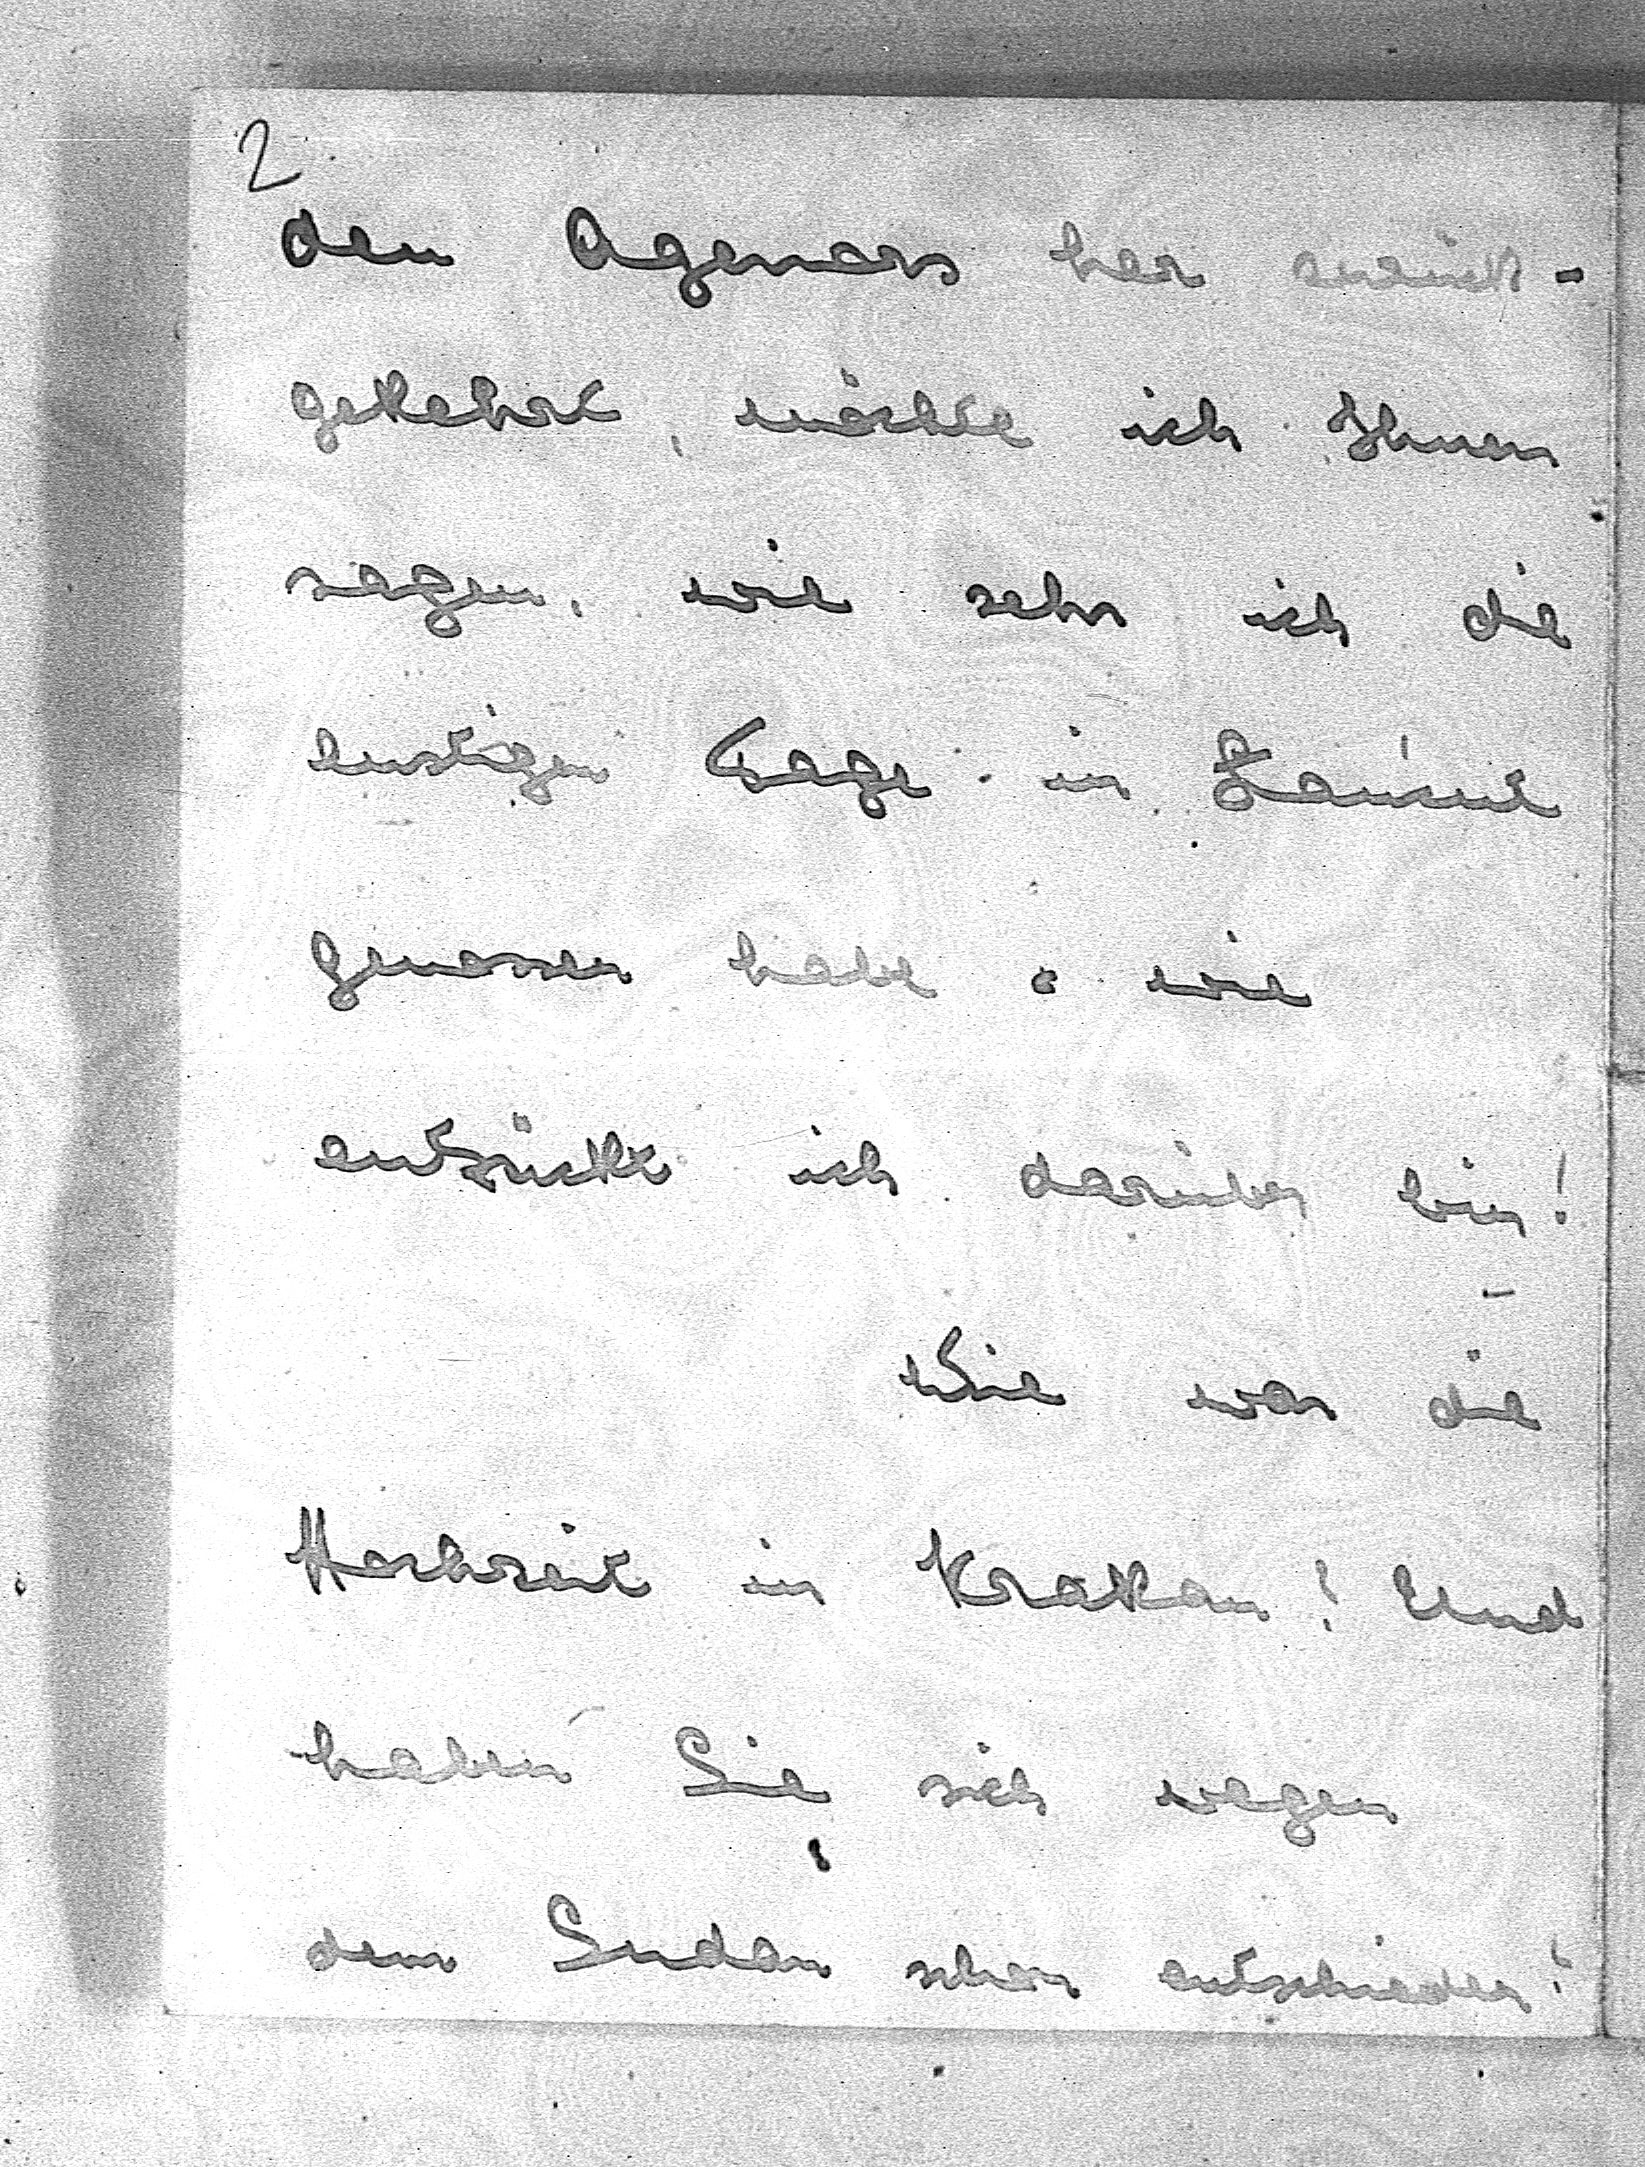 2
den Agenors her zurück-
gekehrt, möchte ich Ihnen
sagen, wie sehr ich die
lustigen Tage in Łańcut
genossen habe & wie
entzückt ich darüber bin!
–
Wie war die
Hochzeit in Krakau? Und
haben Sie sich wegen
dem Sudan schon entschieden?